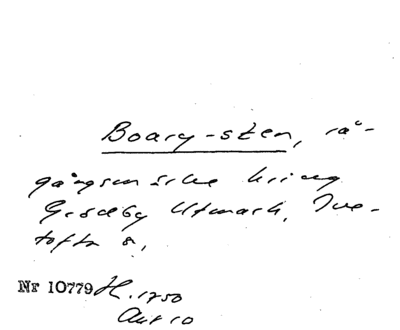 Boary-sten, rå-
gångsmärke kring
Grödby Utmark, Tve-
tofta s,
Nr 10779 H. 1750
Akt 10